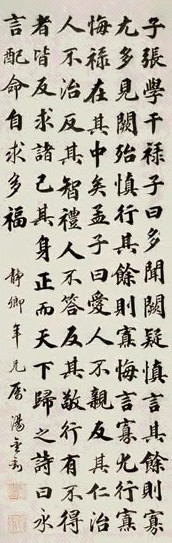 子張學干祿子曰多聞闕疑慎言其餘則寡
尤多見闕殆慎行其餘則寡悔言寡尤行寡
悔祿在其中矣孟子曰愛人不親反其仁治
人不治反其智禮人不答反其敬行有不得
者皆反求諸己其身正而天下歸之詩曰永
言配命自求多福
靜卿年兄屬 湯金釗